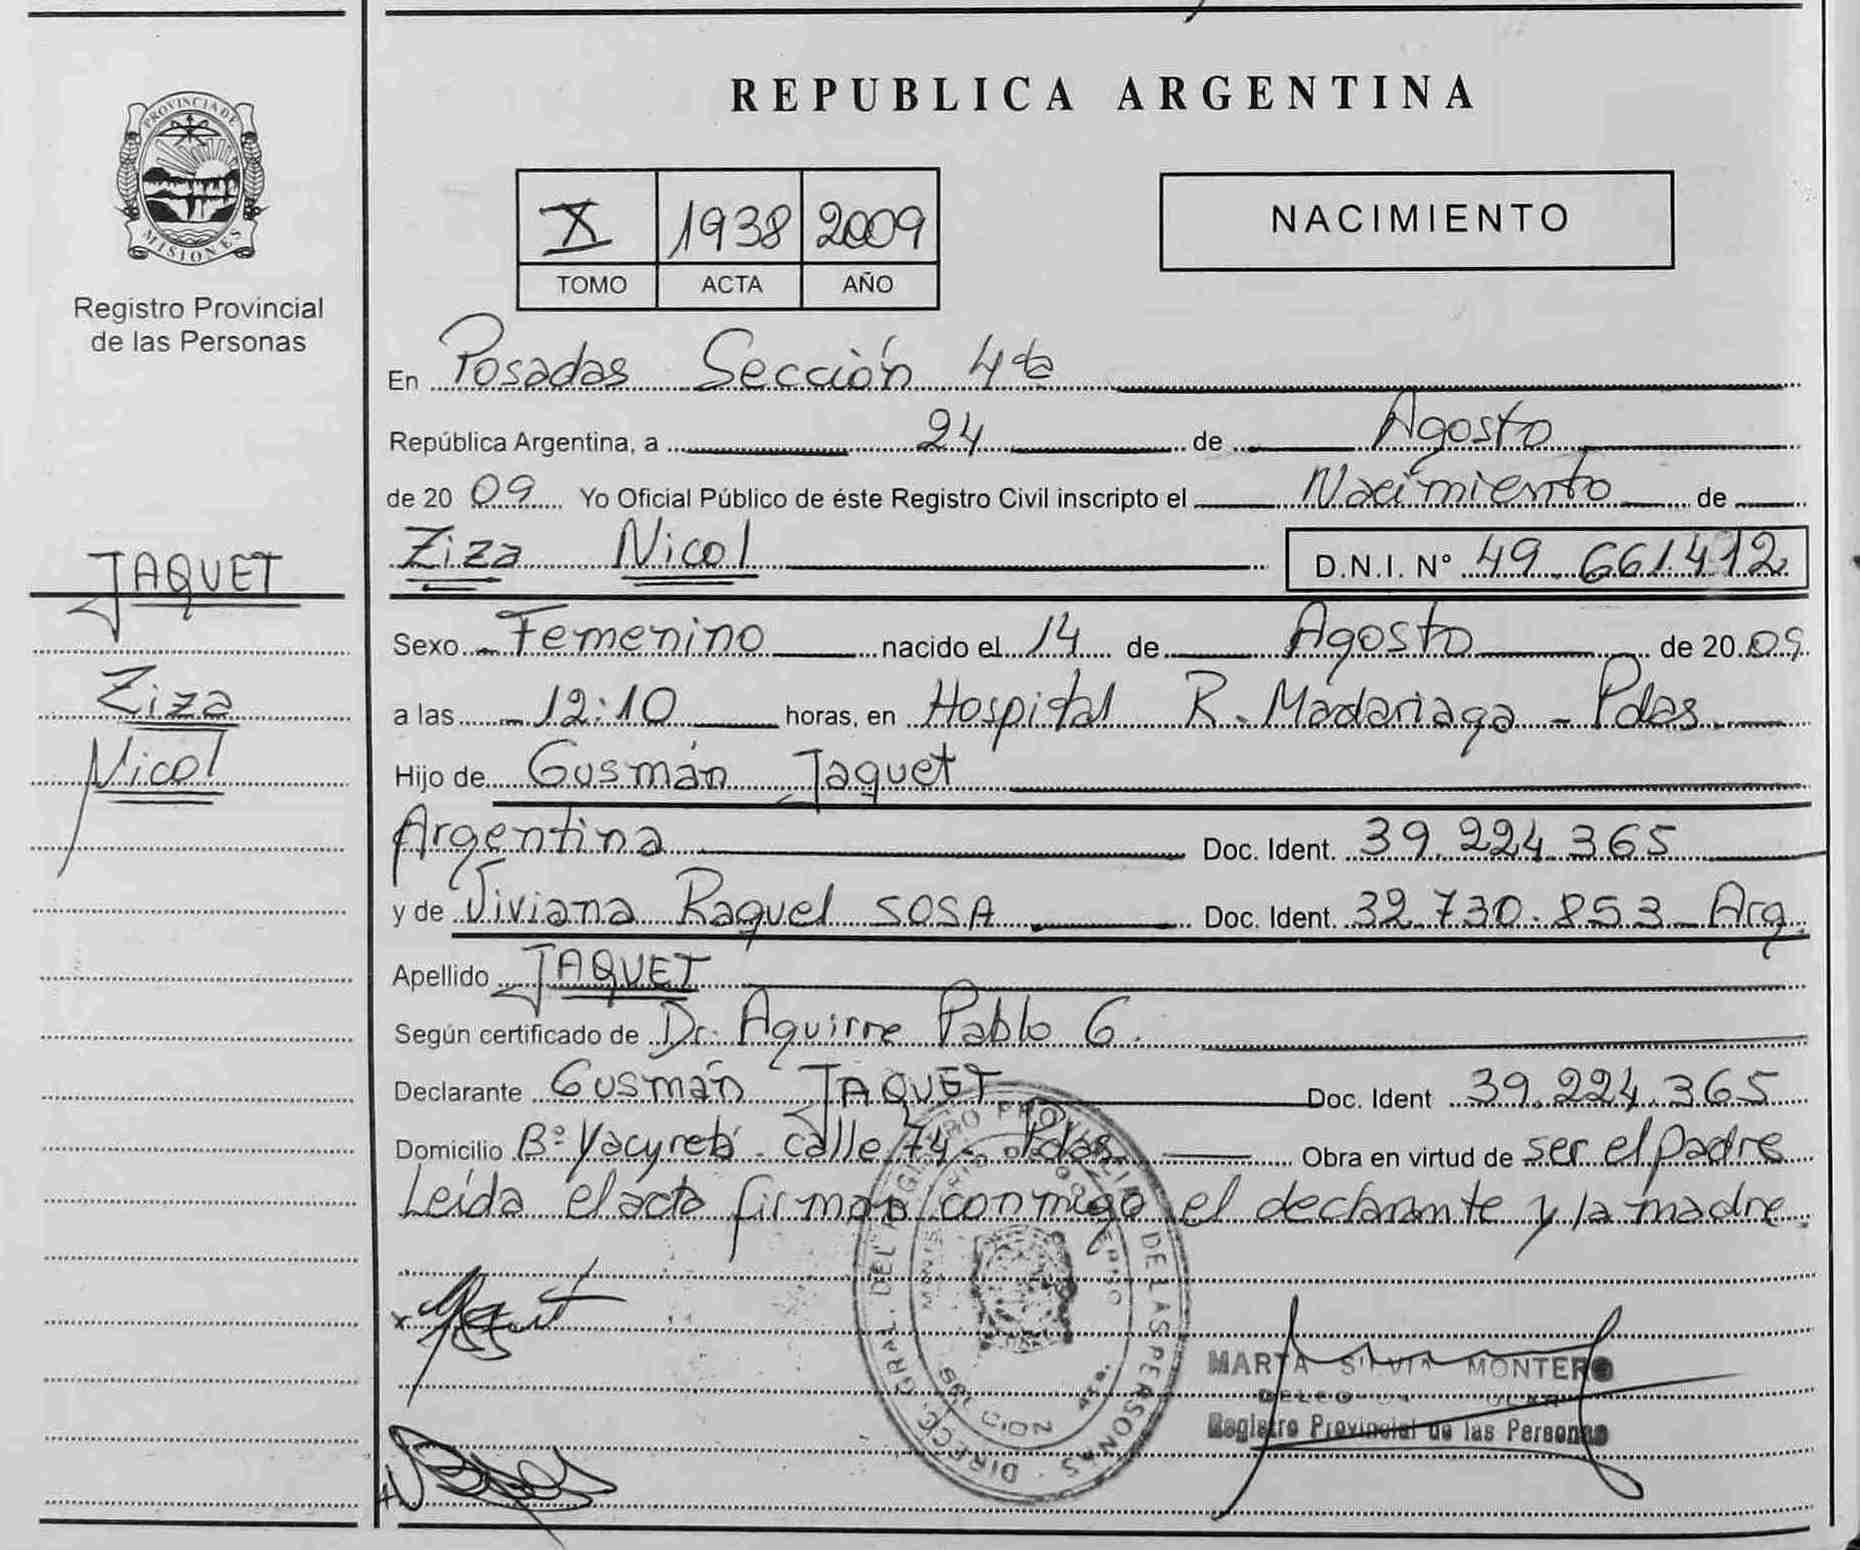 REPUBLICA ARGENTINA
PROVINCIA DE
MISIONES
Registro Provincial
de las Personas
X 1938 2009
TOMO ACTA AÑO
NACIMIENTO
En Posadas Sección 4ta
República Argentina, a 24 de Agosto
de 20 09 Yo Oficial Público de éste Registro Civil inscripto el Nacimiento de
Ziza Nicol D.N.I. Nº 49.661.412
JAQUET
Ziza
Nicol
Sexo Femenino nacido el 14 de Agosto de 20 09
a las 12:10 horas, en Hospital R. Madariaga - Pdas.
Hijo de Gusmán Jaquet
Argentina Doc. Ident. 39.224.365
y de Viviana Raquel SOSA Doc. Ident. 32.730.853 Arg.
Apellido JAQUET
Según certificado de Dr. Aguirre Pablo G.
Declarante Gusmán JAQUET Doc. Ident 39.224.365
Domicilio Bº Yacyretá calle 74 - Pdas. Obra en virtud de ser el padre
Leída el acta firman conmigo el declarante y la madre.
DIRECC. GRAL. DEL REGISTRO PROVINCIAL DE LAS PERSONAS
MARTA SILVIA MONTERO
Registro Provincial de las Personas